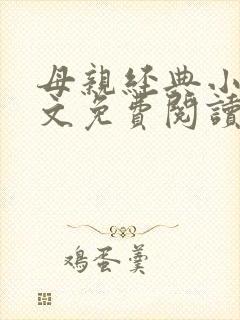 母親經典小
文免費閱讀
鸡蛋羹